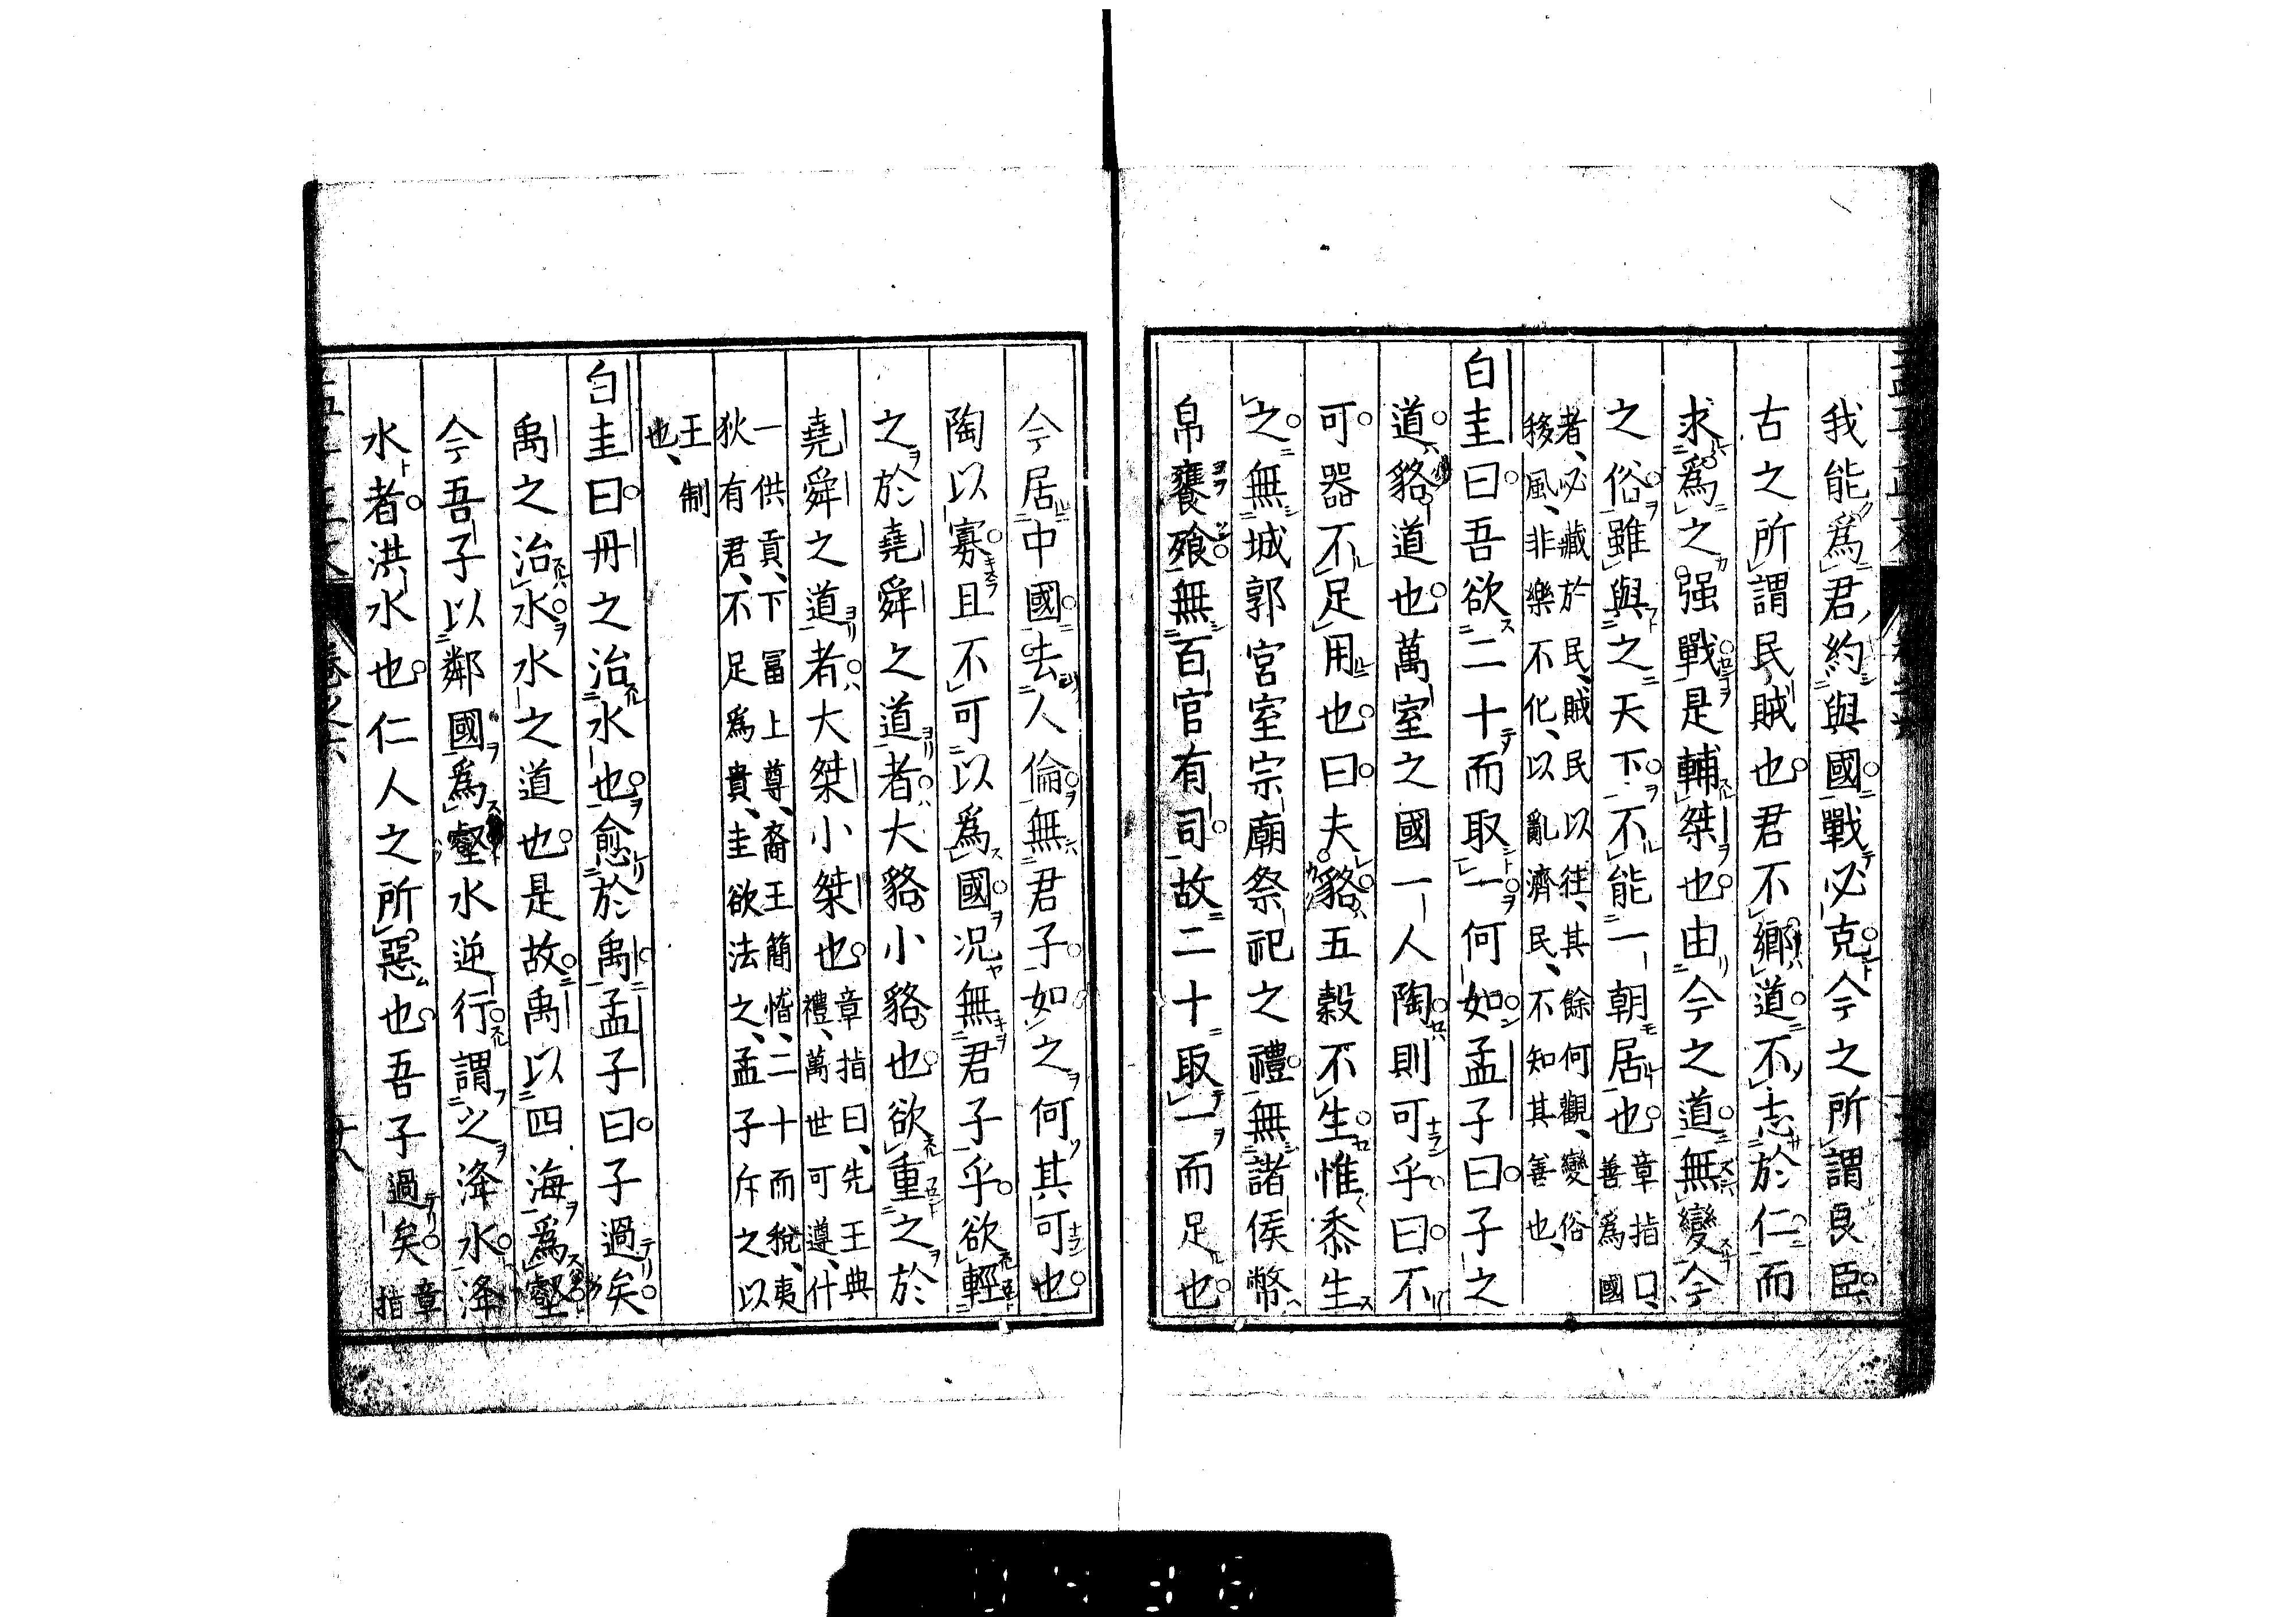 我能爲君約與國戰必克今之所謂良臣
古之所謂民賊也君不鄉道不志於仁而
求爲之强戰是輔桀也由今之道無變今
之俗雖與之天下不能一朝居也章指曰、善爲國
者、必藏於民、賊民以往、其餘何觀、變俗
移風、非樂不化、以亂濟民、不知其善也、
白圭曰吾欲二十而取一何如孟子曰子之
道貉道也萬室之國一人陶則可乎曰不
可器不足用也曰夫貉五穀不生惟黍生
之無城郭宮室宗廟祭祀之禮無諸侯幣
帛饔飱無百官有司故二十取一而足也
今居中國去人倫無君子如之何其可也
陶以寡且不可以爲國況無君子乎欲輕
之於堯舜之道者大貉小貉也欲重之於
堯舜之道者大桀小桀也章指曰、先王典禮、萬世可遵、什
一供貢、下冨上尊、裔王簡惰、二十而稅、夷
狄有君、不足爲貴、圭欲法之、孟子斥之以
王制也、
白圭曰丹之治水也愈於禹孟子曰子過矣
禹之治水水之道也是故禹以四海爲壑
今吾子以鄰國爲壑水逆行謂之洚水洚
水者洪水也仁人之所惡也吾子過矣章指
卷之六